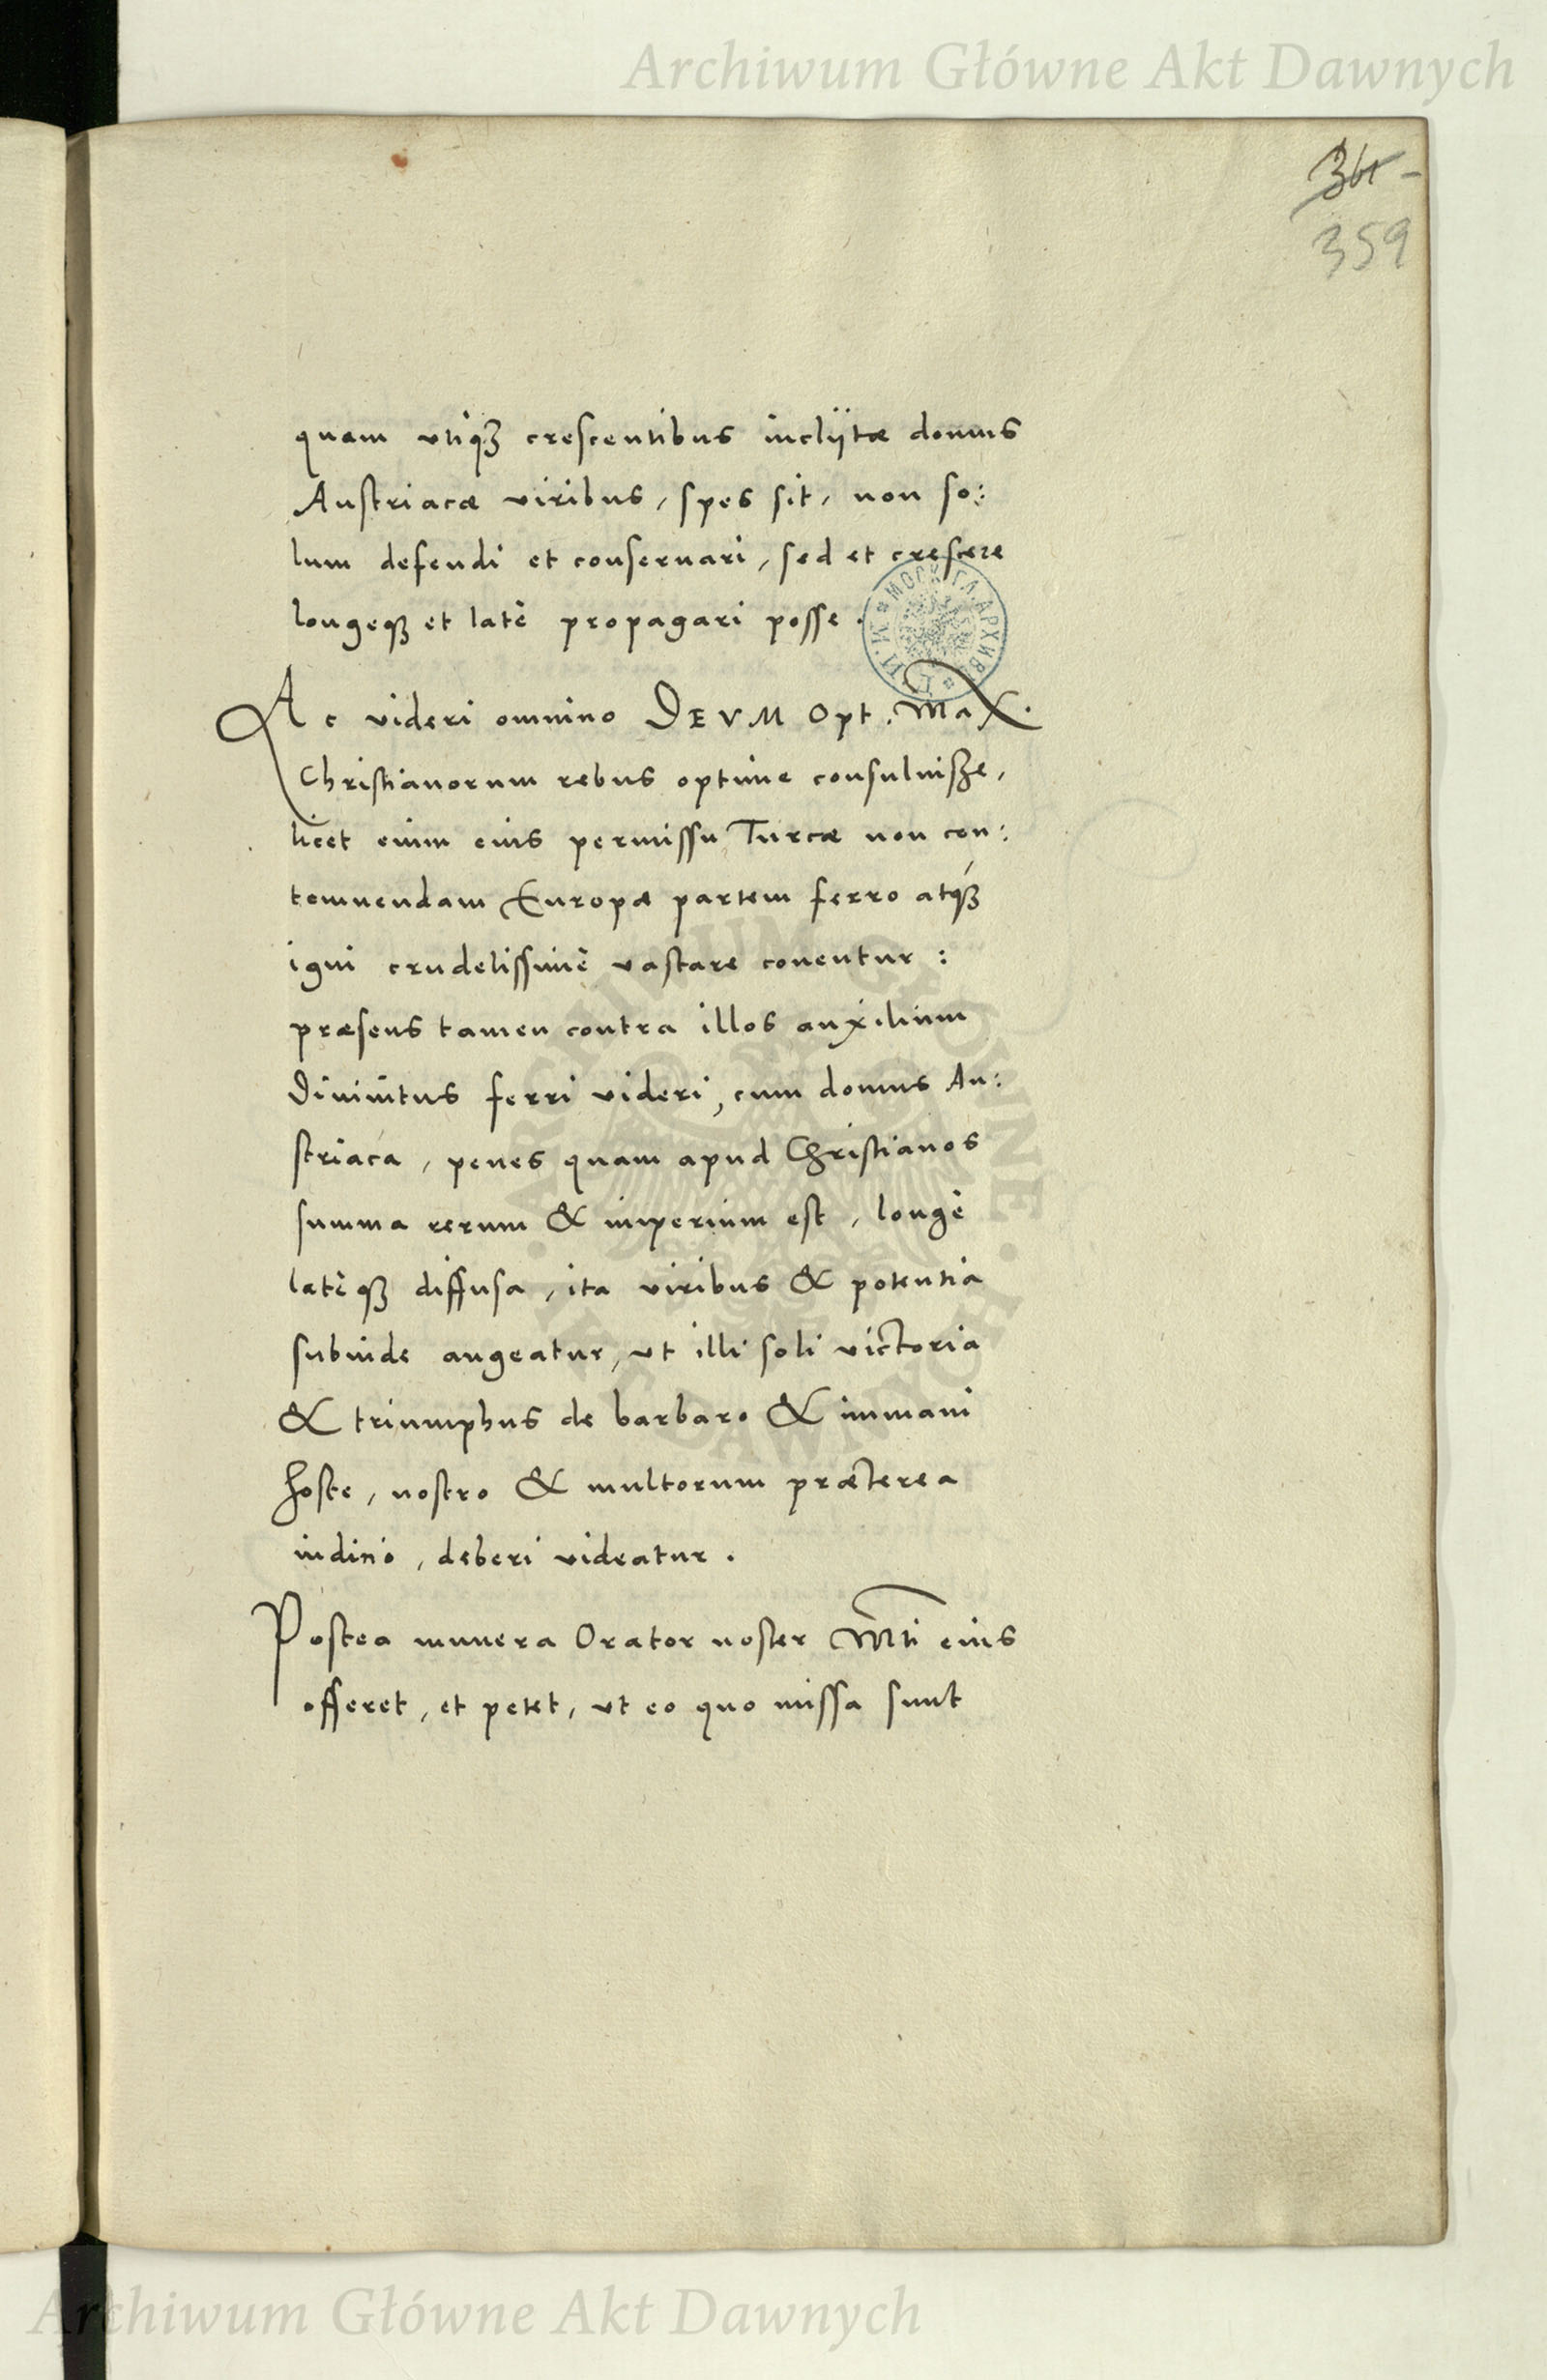 Archiwum Główne Akt Dawnych
361 -
359
quam vtiqꝫ crescentibus inclijtæ domus
Austriacæ viribus, spes sit, non so:
lum defendi et conseruari, sed et crescere
longeqꝫ et latè propagari posse.
Ac videri omnino DEVM Opt. Max.
Christianorum rebus optime consuluisse,
licet enim eius permissu Turcæ non con:
temnendam Europæ partem ferro atqꝫ
igni crudelissimè vastare conentur :
præsens tamen contra illos auxilium
Diuinitus ferri videri, cum domus Au:
striaca, penes quam apud Christianos
summa rerum & imperium est, longè
latèqꝫ diffusa, ita viribus & potentia
subinde augeatur, vt illi soli victoria
& triumphus de barbaro & immani
hoste, nostro & multorum præterea
iudicio, deberi videatur.
Postea munera Orator noster Mti eius
offeret, et petet, vt eo quo missa sunt
Archiwum Główne Akt Dawnych